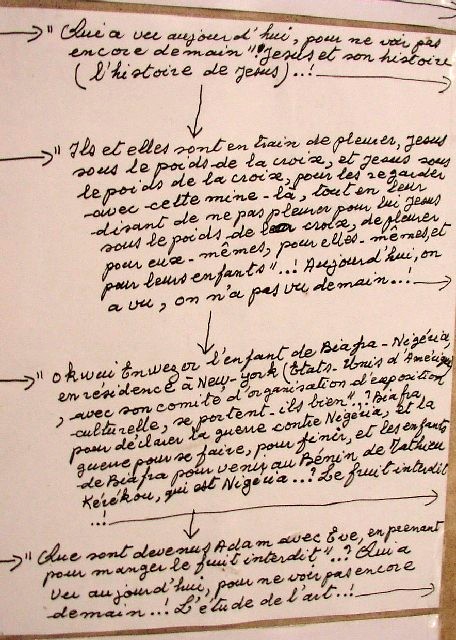 " Qui a vu aujourd'hui, pour ne voir pas
encore demain" Jesus et son histoire
(l'histoire de Jesus)..!
" Ils et elles sont en train de pleurer, Jesus
sous le poids de la croix, et Jesus sous
le poids de la croix, pour les regarder
avec cette mine-là, tout en leur
disant de ne pas pleurer pour lui Jesus
sous le poids de la croix, de pleurer
pour eux-mêmes, pour elles-mêmes, et
pour leurs enfants"..! Aujourd'hui, on
a vu, on n'a pas vu demain...!
" Okwui Enwezor l'enfant de Biafra-Nigéria,
en résidence à New-york (Etats-Unis d'Amérique)
, avec son comité d'organisation d'exposition
culturelle, se portent-ils bien"..? Biafra
pour déclarer la guerre contre Nigéria, et la
guerre pour se faire, pour finir, et les enfants
de Biafra pour venir au Bénin de Mathieu
Kérékou, qui est Nigéria...? Le fruit interdit
..!
" Que sont devenus Adam avec Eve, en prenant
pour manger le fruit interdit"..? Qui a
vu aujourd'hui, pour ne voir pas encore
demain..! L'étude de l'art..!